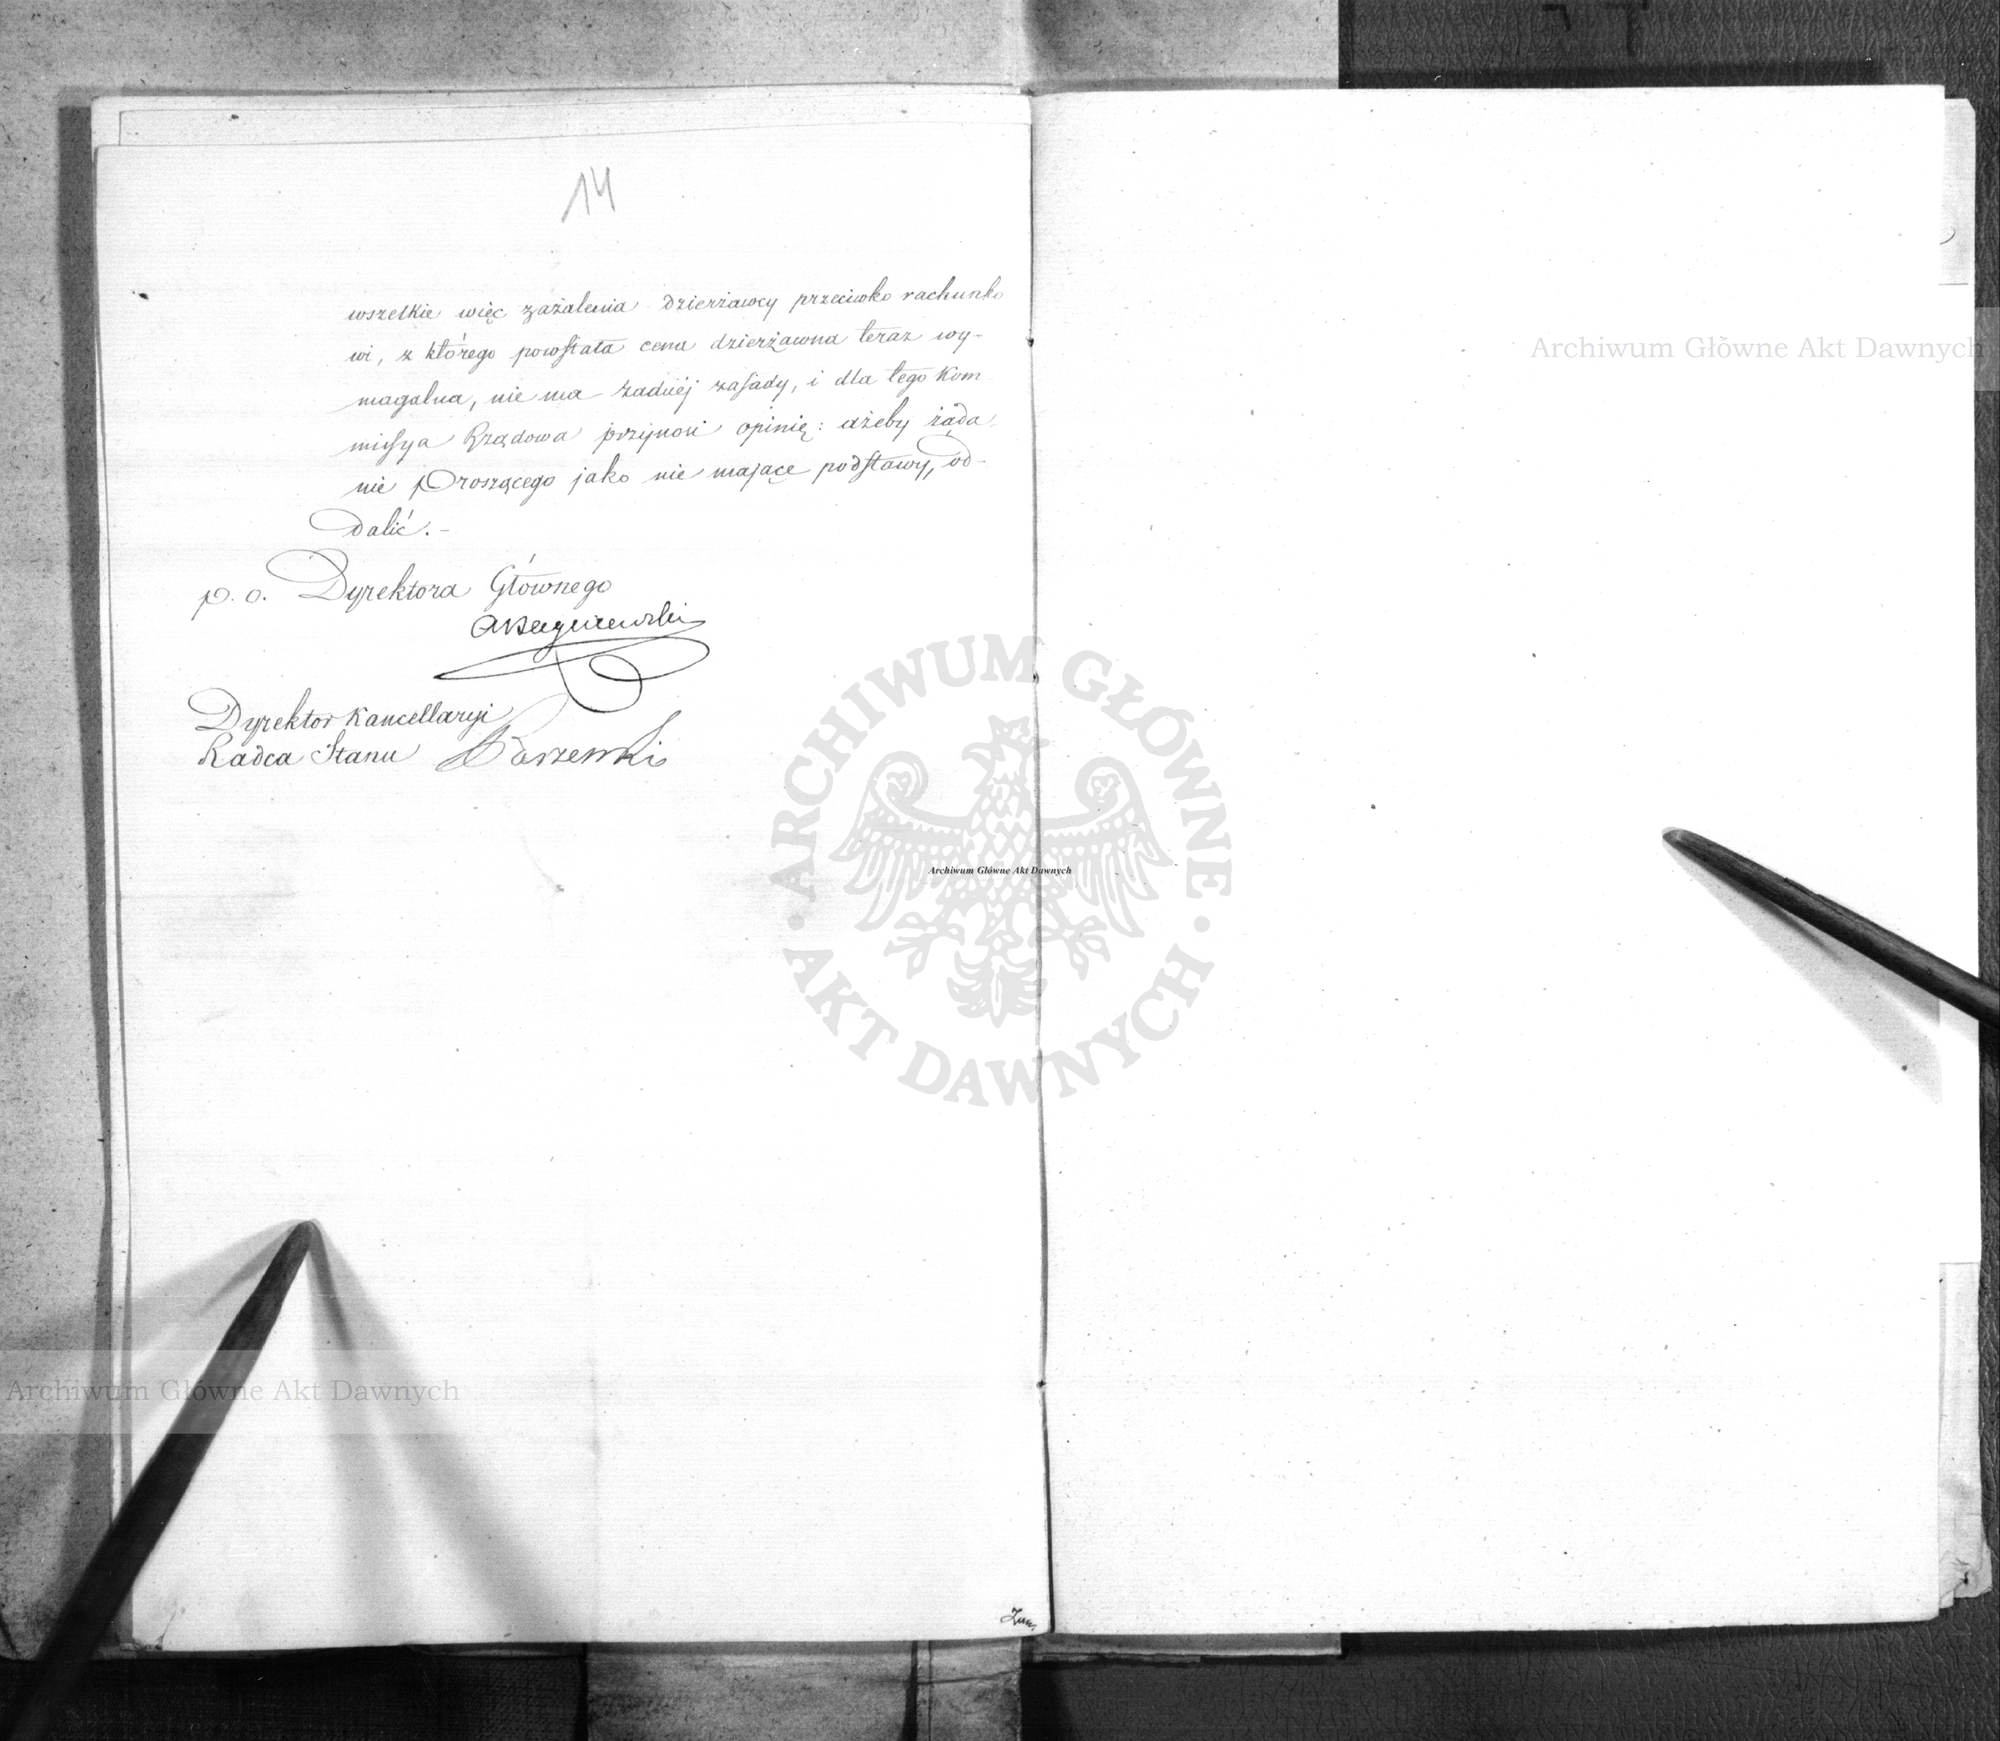 14
wszelkie więc zażalenia dzierżawcy przeciwko rachunko
wi, z którego powstała cena dzierżawna teraz wy-
magalna, nie ma żadnej zasady, i dla tego Kom
missya Rządowa przynosi opinię: ażeby żąda
nie proszącego jako nie mające podstawy, od-
dalić.-
p. o. Dyrektora Głównego
Dyrektor Kancellaryi
Radca Stanu
Archiwum Główne Akt Dawnych
ARCHIWUM GŁÓWNE AKT DAWNYCH
Archiwum Główne Akt Dawnych
Archiwum Główne Akt Dawnych